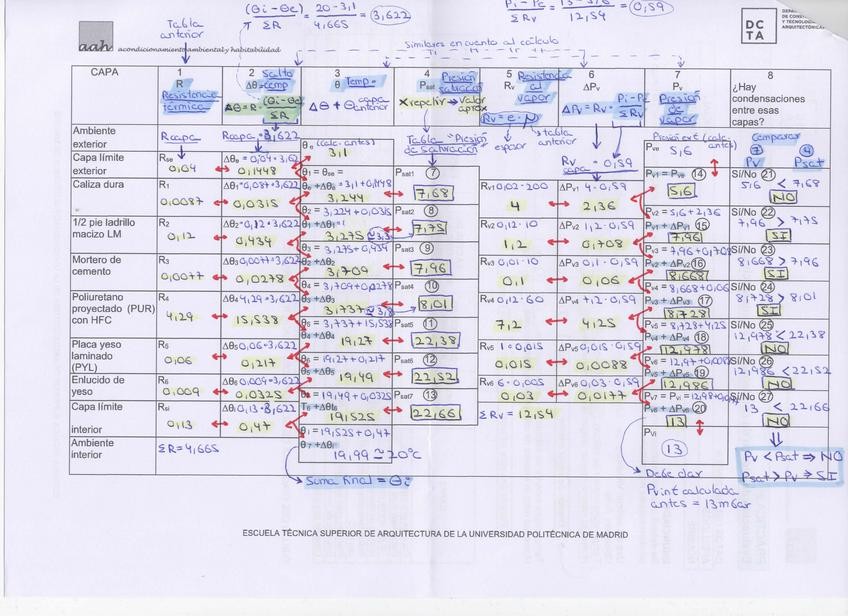 (θi - θe) / ΣR = 20-3,1 / 4,665 = 3,622
Pi - Pe / ΣRv = / 12,54 = 0,59
Tabla anterior
Similares en cuanto al cálculo
aah acondicionamiento ambiental y habitabilidad
DCTA
CAPA
1 R Resistencia térmica
2 Δθ Salto temp Δθ = R · (θi-θe) / ΣR
3 θ Temp = Δθ + θ capa anterior
4 Psat Presión saturación
X repetir → valor aprox
5 Rv Resistencia al vapor Rv = e · μ
6 ΔPv ΔPv = Rv · Pi-Pe / ΣRv
7 Pv Presión de vapor
8 ¿Hay condensaciones entre esas capas?
Ambiente exterior
Rcapa
Rcapa · 3,622
θe (calc. antes) 3,1
Tabla "Presión de saturación"
espesor
tabla anterior
Rv capa · 0,59
Presión ext (calc. antes)
Pve 5,6
Comparar
7 Pv
4 Psat
Capa límite exterior
Rse 0,04
Δθe = 0,04·3,62
0,1448
θ1 = θse =
θe + Δθe = 3,1+0,1448
3,244
Psat1 7
7,68
Pv1 = Pve 14
5,6
Sí/No 21
5,6 < 7,68
NO
Caliza dura
R1 0,0087
Δθ1=0,087·3,622
0,0315
θ2 = 3,224+0,0315
θ1+Δθ1=
3,275 ≃ 3,3
Psat2 8
7,75
Rv1 0,02·200
4
ΔPv1 4·0,59
2,36
Pv2 = 5,6+2,36
Pv1 + ΔPv1 15
7,96
Sí/No 22
7,96 > 7,75
SI
1/2 pie ladrillo macizo LM
R2 0,12
Δθ2=0,12·3,622
0,434
θ3 = 3,275+0,434
θ2 + Δθ2
3,709
Psat3 9
7,96
Rv2 0,12·10
1,2
ΔPv2 1,2·0,59
0,708
Pv3 = 7,96+0,708
Pv2 + ΔPv2 16
8,668
Sí/No 23
8,668 > 7,96
SI
Mortero de cemento
R3 0,0077
Δθ3=0,0077·3,622
0,0278
θ4 = 3,709+0,0278
θ3 + Δθ3
3,737 ≃ 3,8
Psat4 10
8,01
Rv3 0,01·10
0,1
ΔPv3 0,1·0,59
0,06
Pv4 = 8,668+0,06
Pv3 + ΔPv3 17
8,728
Sí/No 24
8,728 > 8,01
SI
Poliuretano proyectado (PUR) con HFC
R4 4,29
Δθ4 4,29·3,622
15,538
θ5 = 3,737+15,538
θ4 + Δθ4
19,27
Psat5 11
22,38
Rv4 0,12·60
7,2
ΔPv4 ·0,59
4,25
Pv5 = 8,728+4,25
Pv4 + ΔPv4 18
12,978
Sí/No 25
12,978 < 22,38
NO
Placa yeso laminado (PYL)
R5 0,06
Δθ5 0,06·3,622
0,217
θ6 = 19,27+0,217
θ5 + Δθ5
19,49
Psat6 12
22,52
Rv5 1·0,015
0,015
ΔPv5 0,015·0,59
0,0088
Pv6 = 12,97+0,0088
Pv5 + ΔPv5 19
12,986
Sí/No 26
12,986 < 22,52
NO
Enlucido de yeso
R6 0,009
Δθ6 0,009·3,622
0,0325
θ = 19,49+0,0325
19,525
Psat7 13
22,66
Rv6 6·0,005
0,03
ΔPv6 0,03·0,59
0,0177
Pv7 = Pvi =
Pv6 + ΔPv6 20
13
Sí/No 27
13 < 22,66
NO
Capa límite interior
Rsi 0,13
Δθi 0,13·3,622
0,47
θi = 19,525+0,47
θ7 + Δθi
19,99 ≃ 20°C
ΣRv = 12,54
Pvi 13
Ambiente interior
ΣR = 4,665
Suma final = θi
Debe dar
Pvint calculada antes = 13 mbar
Pv < Psat ⇒ NO
Psat > Pv ⇒ SI
ESCUELA TÉCNICA SUPERIOR DE ARQUITECTURA DE LA UNIVERSIDAD POLITÉCNICA DE MADRID